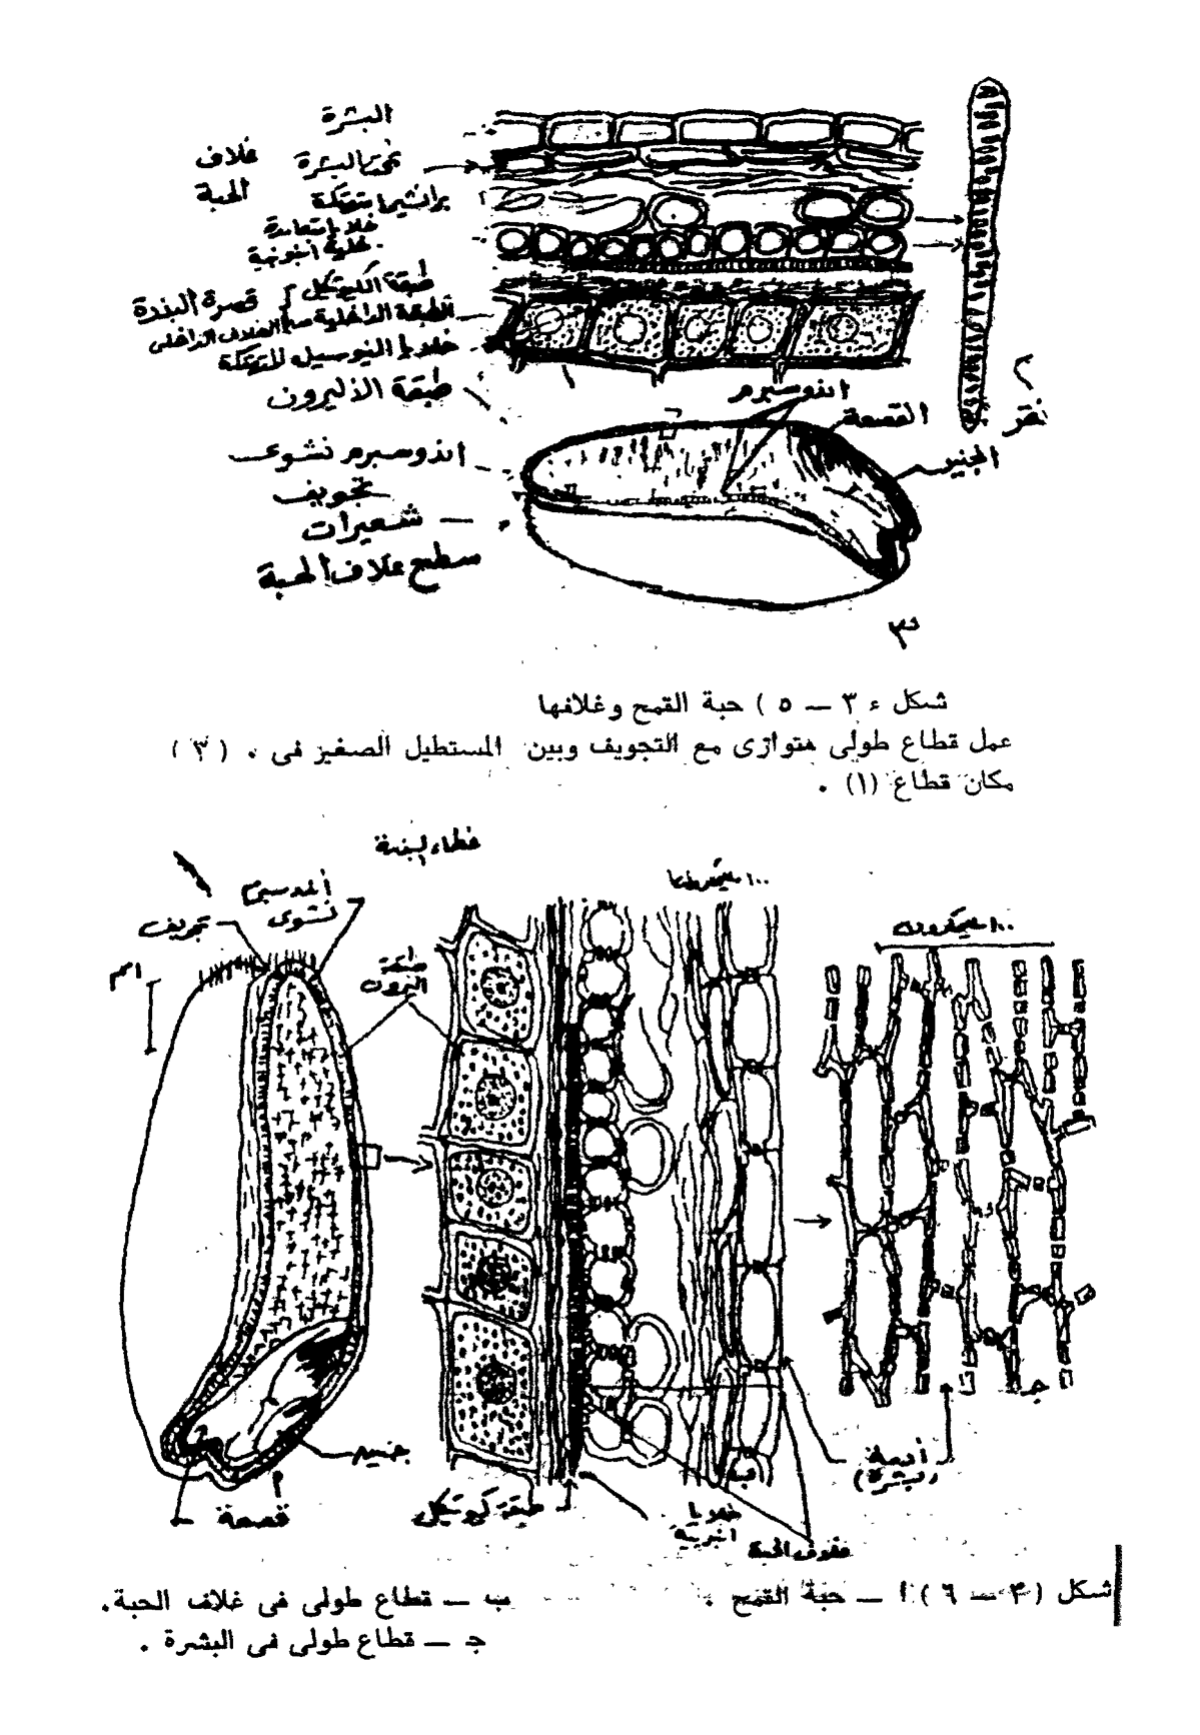 البشرة
غلاف
الحبة
تحت البشرة
برانشيما متهتكة
خلايا متعامدة
طبقة الكيوتكل
قصرة البذرة
الطبقة الداخلية من الغلاف الداخلى
خلايا النيوسيلة المتهتكة
طبقة الاليرون
اندوسبرم
القصعة
الجنين
اندوسبرم نشوى
تجويف
شعيرات
سطح غلاف الحبة
٢
٣
شكل ( ٣ — ٥ ) حبة القمح وغلافها
عمل قطاع طولى متوازى مع التجويف وبين المستطيل الصغير فى . ( ٣ )
مكان قطاع (١) .
غطاء البذرة
نشوى
تجويف
١مم
طبقة
اليرون
١٠٠ ميكرون
جنين
قصعة
طبقة كيوتيكل
خلايا
غلاف الحبة
(بشرة)
ب
جـ
شكل ( ٣ — ٦ ) أ — حبة القمح .
ب — قطاع طولى فى غلاف الحبة .
جـ — قطاع طولى فى البشرة .